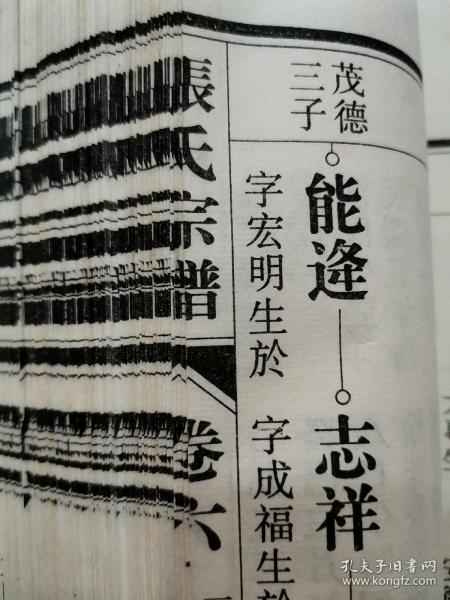 茂德
三子
能逄
字宏明生於
志祥
字成福生於
張氏宗譜
卷六
孔夫子旧书网
www.kongfz.com